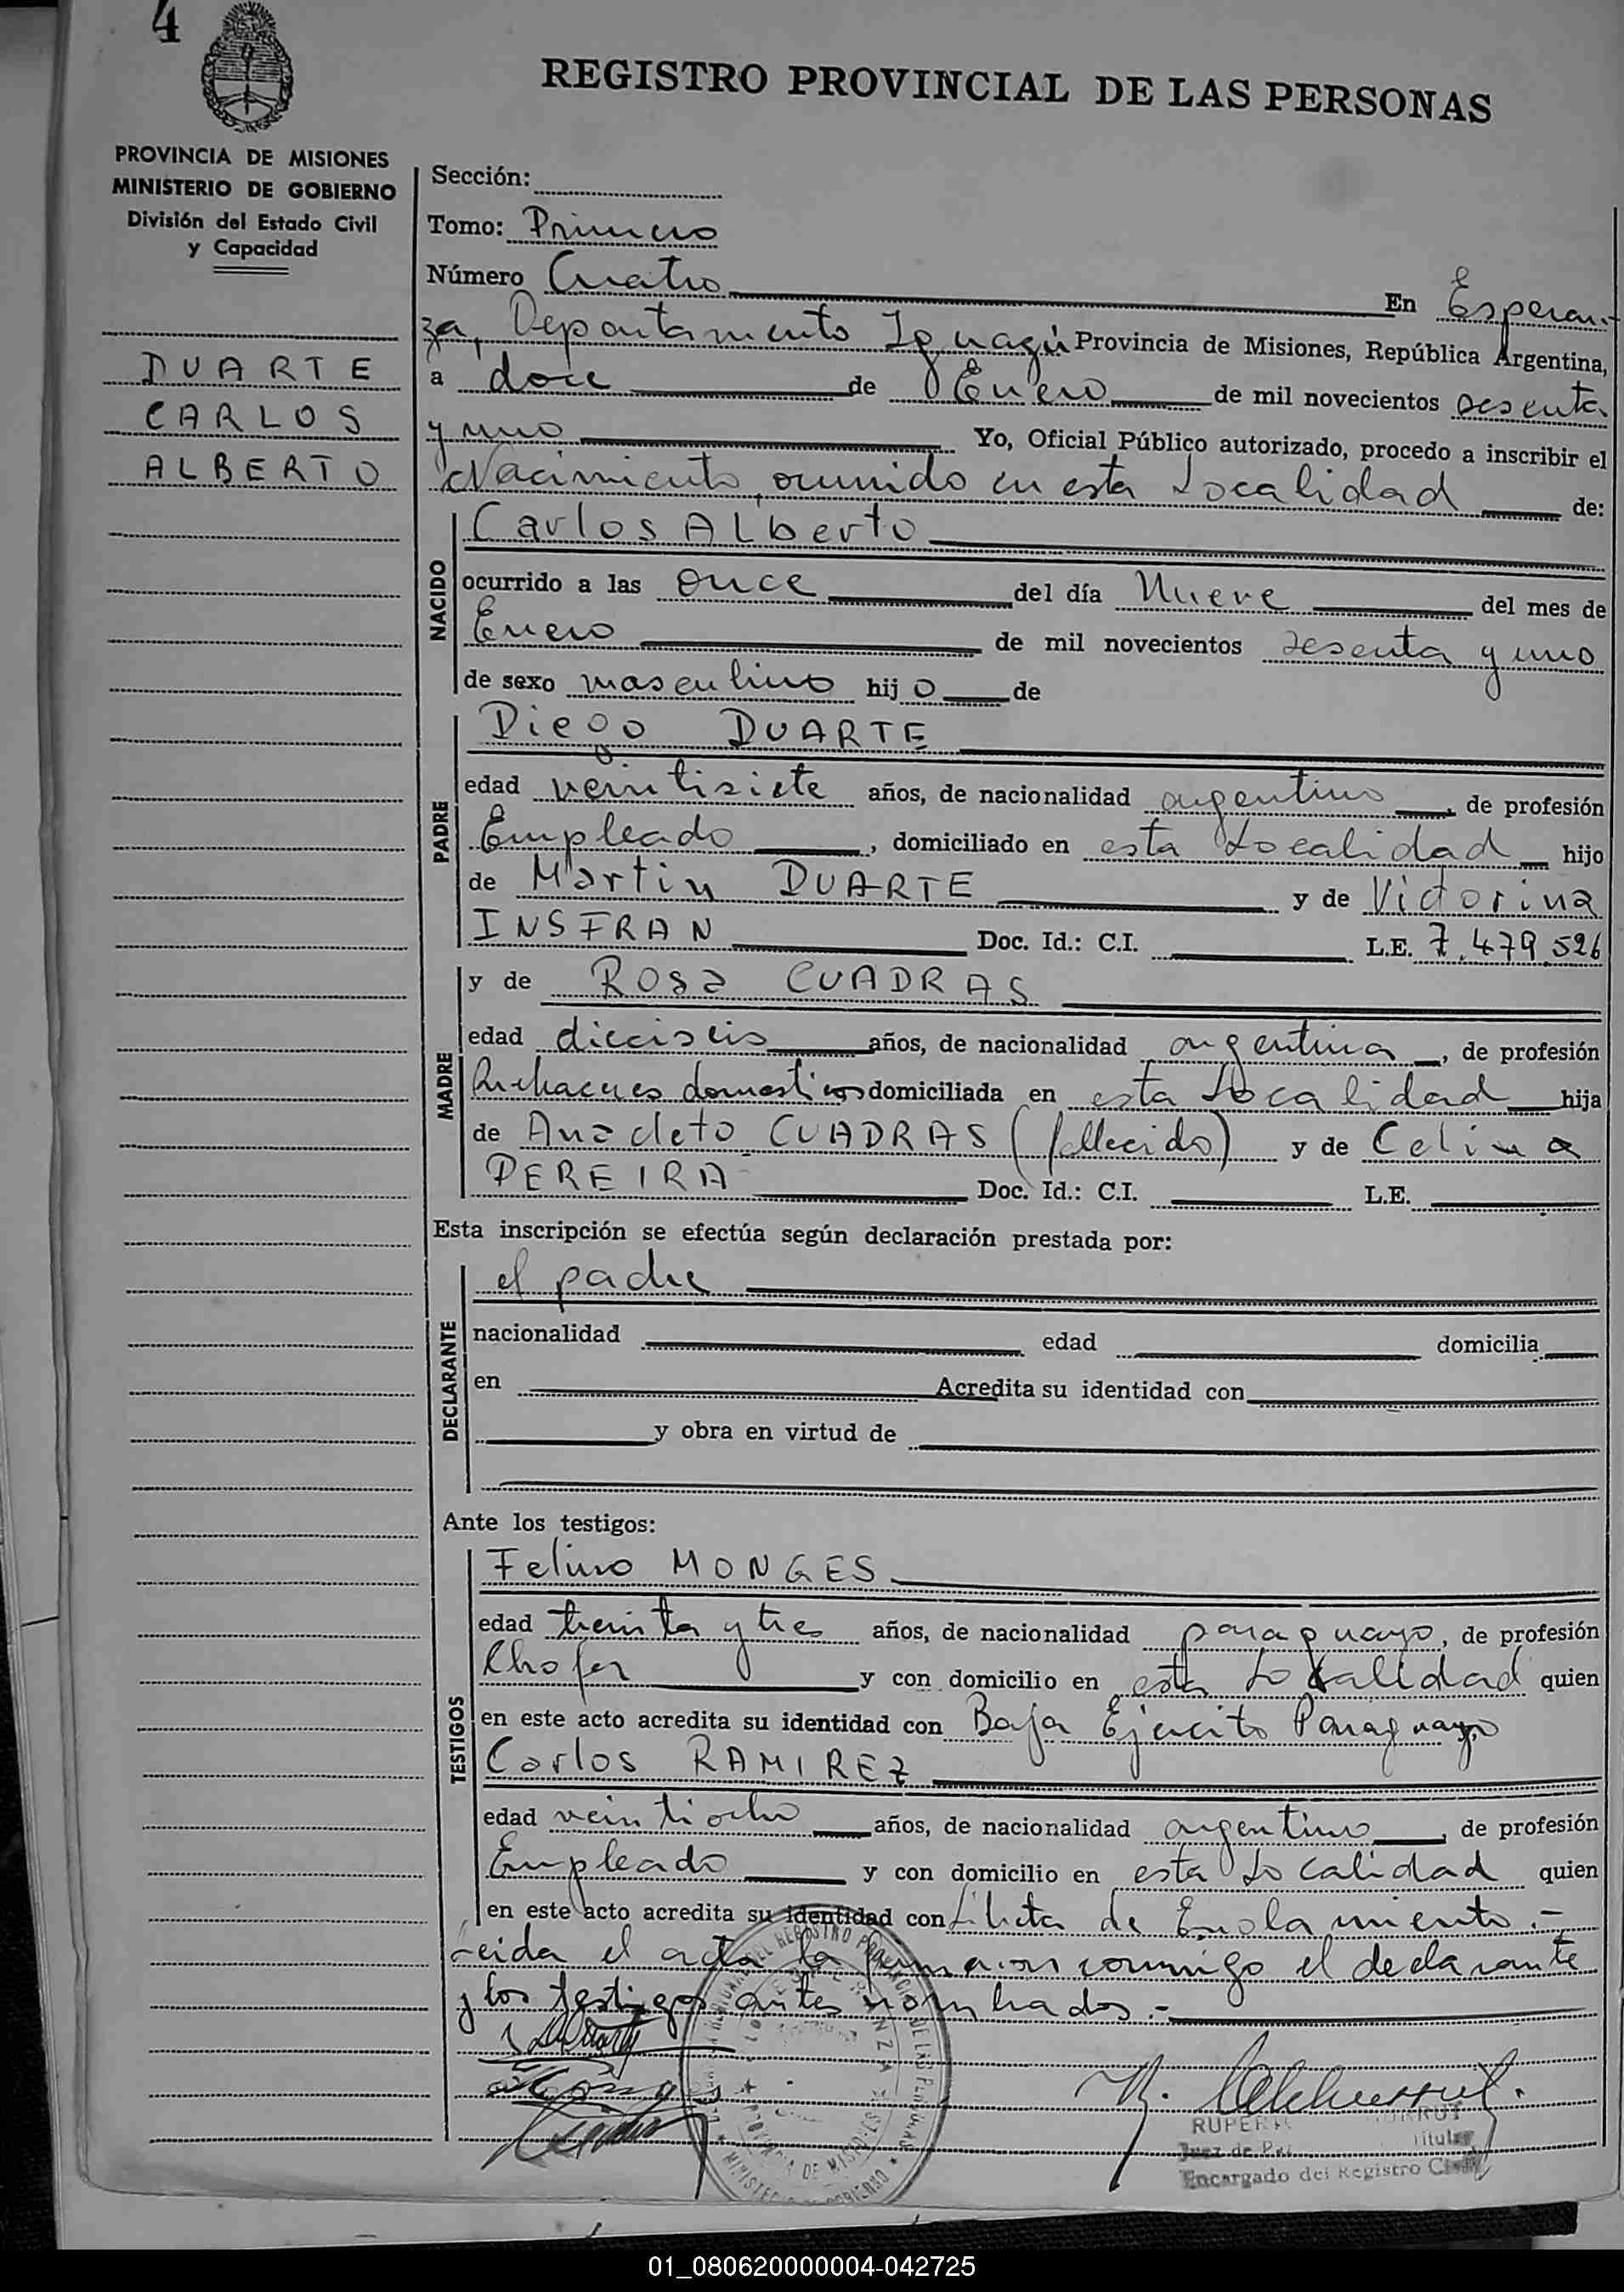 4
REGISTRO PROVINCIAL DE LAS PERSONAS
PROVINCIA DE MISIONES
MINISTERIO DE GOBIERNO
División del Estado Civil
y Capacidad
DUARTE
CARLOS
ALBERTO
Sección:
Tomo: Primero
Número Cuatro En Esperan-
za, Departamento Iguazú Provincia de Misiones, República Argentina,
a doce de Enero de mil novecientos sesenta
y uno Yo, Oficial Público autorizado, procedo a inscribir el
Nacimiento, ocurrido en esta Localidad de:
NACIDO
Carlos Alberto
ocurrido a las once del día Nueve del mes de
Enero de mil novecientos sesenta y uno
de sexo masculino hijo de
PADRE
Diego DUARTE
edad veintisiete años, de nacionalidad argentino, de profesión
Empleado, domiciliado en esta Localidad hijo
de Martin DUARTE y de Victorina
INSFRAN Doc. Id.: C.I. L.E. 7.479.526
MADRE
y de Rosa CUADRAS
edad dieciseis años, de nacionalidad argentina, de profesión
Quehaceres domesticos domiciliada en esta Localidad hija
de Anacleto CUADRAS (fallecido) y de Celina
PEREIRA Doc. Id.: C.I. L.E.
Esta inscripción se efectúa según declaración prestada por:
DECLARANTE
el padre
nacionalidad edad domicilia
en Acredita su identidad con
y obra en virtud de
Ante los testigos:
TESTIGOS
Felino MONGES
edad treinta y tres años, de nacionalidad paraguayo, de profesión
Chofer y con domicilio en esta Localidad quien
en este acto acredita su identidad con Baja Ejercito Paraguayo
Carlos RAMIREZ
edad veintiocho años, de nacionalidad argentino, de profesión
Empleado y con domicilio en esta Localidad quien
en este acto acredita su identidad con Libreta de Enrolamiento.-
Leida el acta la firmaron conmigo el declarante
y los testigos antes nombrados.-
Juez de Paz Titular
Encargado del Registro Civil
01_080620000004-042725